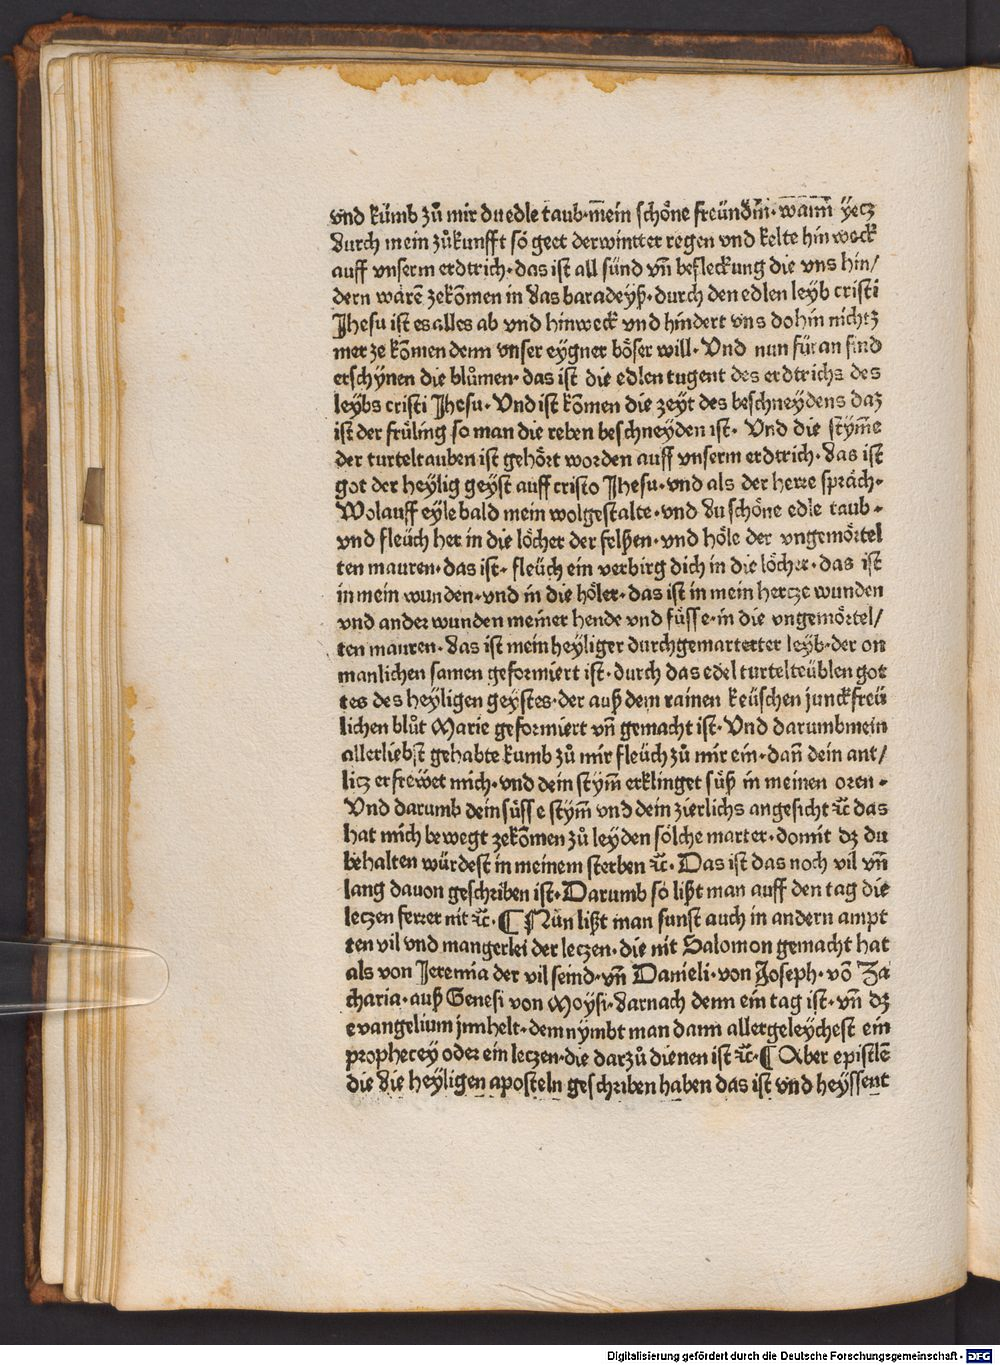 vnd kümb zů mir du edle taub·mein schöne freündin̄·wann̄ yecz
durch mein zůkunfft so geet der wintter regen vnd kelte hin weck
auff vnserm erdtrich·das ist all sünd vn̄ befleckung die vns hin/
dern wären̄ zekōmen in das baradeyß·durch den edlen leyb cristi
Jhesu ist es alles ab vnd hinweck vnd hindert vns dohin nichtz
mer ze kōmen denn vnser eygner böser will·Vnd nun für an sind
erschÿnen die blůmen·das ist die edlen tugent des erdtrichs des
leÿbs cristi Jhesu·Vnd ist kōmen die zeÿt des beschneÿdens daz
ist der früling so man die reben beschneÿden ist·Vnd die stÿm̄e
der turteltauben ist gehört worden auff vnserm erdtrich·das ist
got der heÿlig geÿst auff cristo Jhesu·vnd als der herre spräch·
Wolauff eÿle bald mein wolgestalte·vnd du schöne edle taub·
vnd fleüch her in die löcher der felßen·vnd höle der vngemörtel
ten mauren·das ist·fleüch ein verbirg dich in die löcher·das ist
in mein wunden·vnd in die höler·das ist in mein hercze wunden
vnd ander wunden meiner hende vnd füsse·in die vngemörtel/
ten mauren·das ist mein heÿliger durchgemarterter leÿb·der on
manlichen samen geformiert ist·durch das edel turtelteüblen got
tes des heÿligen geÿstes·der auß dem rainen keüschen junckfreü
lichen blůt Marie geformiert vn̄ gemacht ist·Vnd darumb mein
allerliebst gehabte kumb zů mir fleüch zů mir ein·dan̄ dein ant/
licz erfrewet mich·vnd dein stÿm̄ erklinget süß in meinen oren·
Vnd darumb dein süsse stÿm̄ vnd dein zierlichs angesicht ꝛc̄ das
hat mich bewegt zekōmen zů leÿden sölche marter·domit dz du
behalten würdest in meinem sterben ꝛc̄·Das ist das noch vil vn̄
lang dauon geschriben ist·Darumb so lißt man auff den tag die
leczen ferrer nit ꝛc̄·¶ Nün lißt man sunst auch in andern ampt
ten vil vnd mangerlei der leczen·die nit Salomon gemacht hat
als von Jeremia der vil seind·vn̄ Danieli·von Joseph·vō Za
charia·auß Genesi von Moÿsi·darnach denn ein tag ist·vn̄ dz
evangelium jnnhelt·dem nÿmbt man dann allergeleÿchest ein
prophecey oder ein leczen·die darzů dienen ist ꝛc̄·¶ Aber epistlē
die die heÿligen aposteln geschriben haben das ist vnd heÿssent
Digitalisierung gefördert durch die Deutsche Forschungsgemeinschaft - DFG